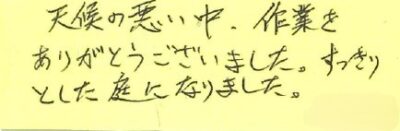 天候の悪い中、作業を
ありがとうございました。すっきり
とした庭になりました。